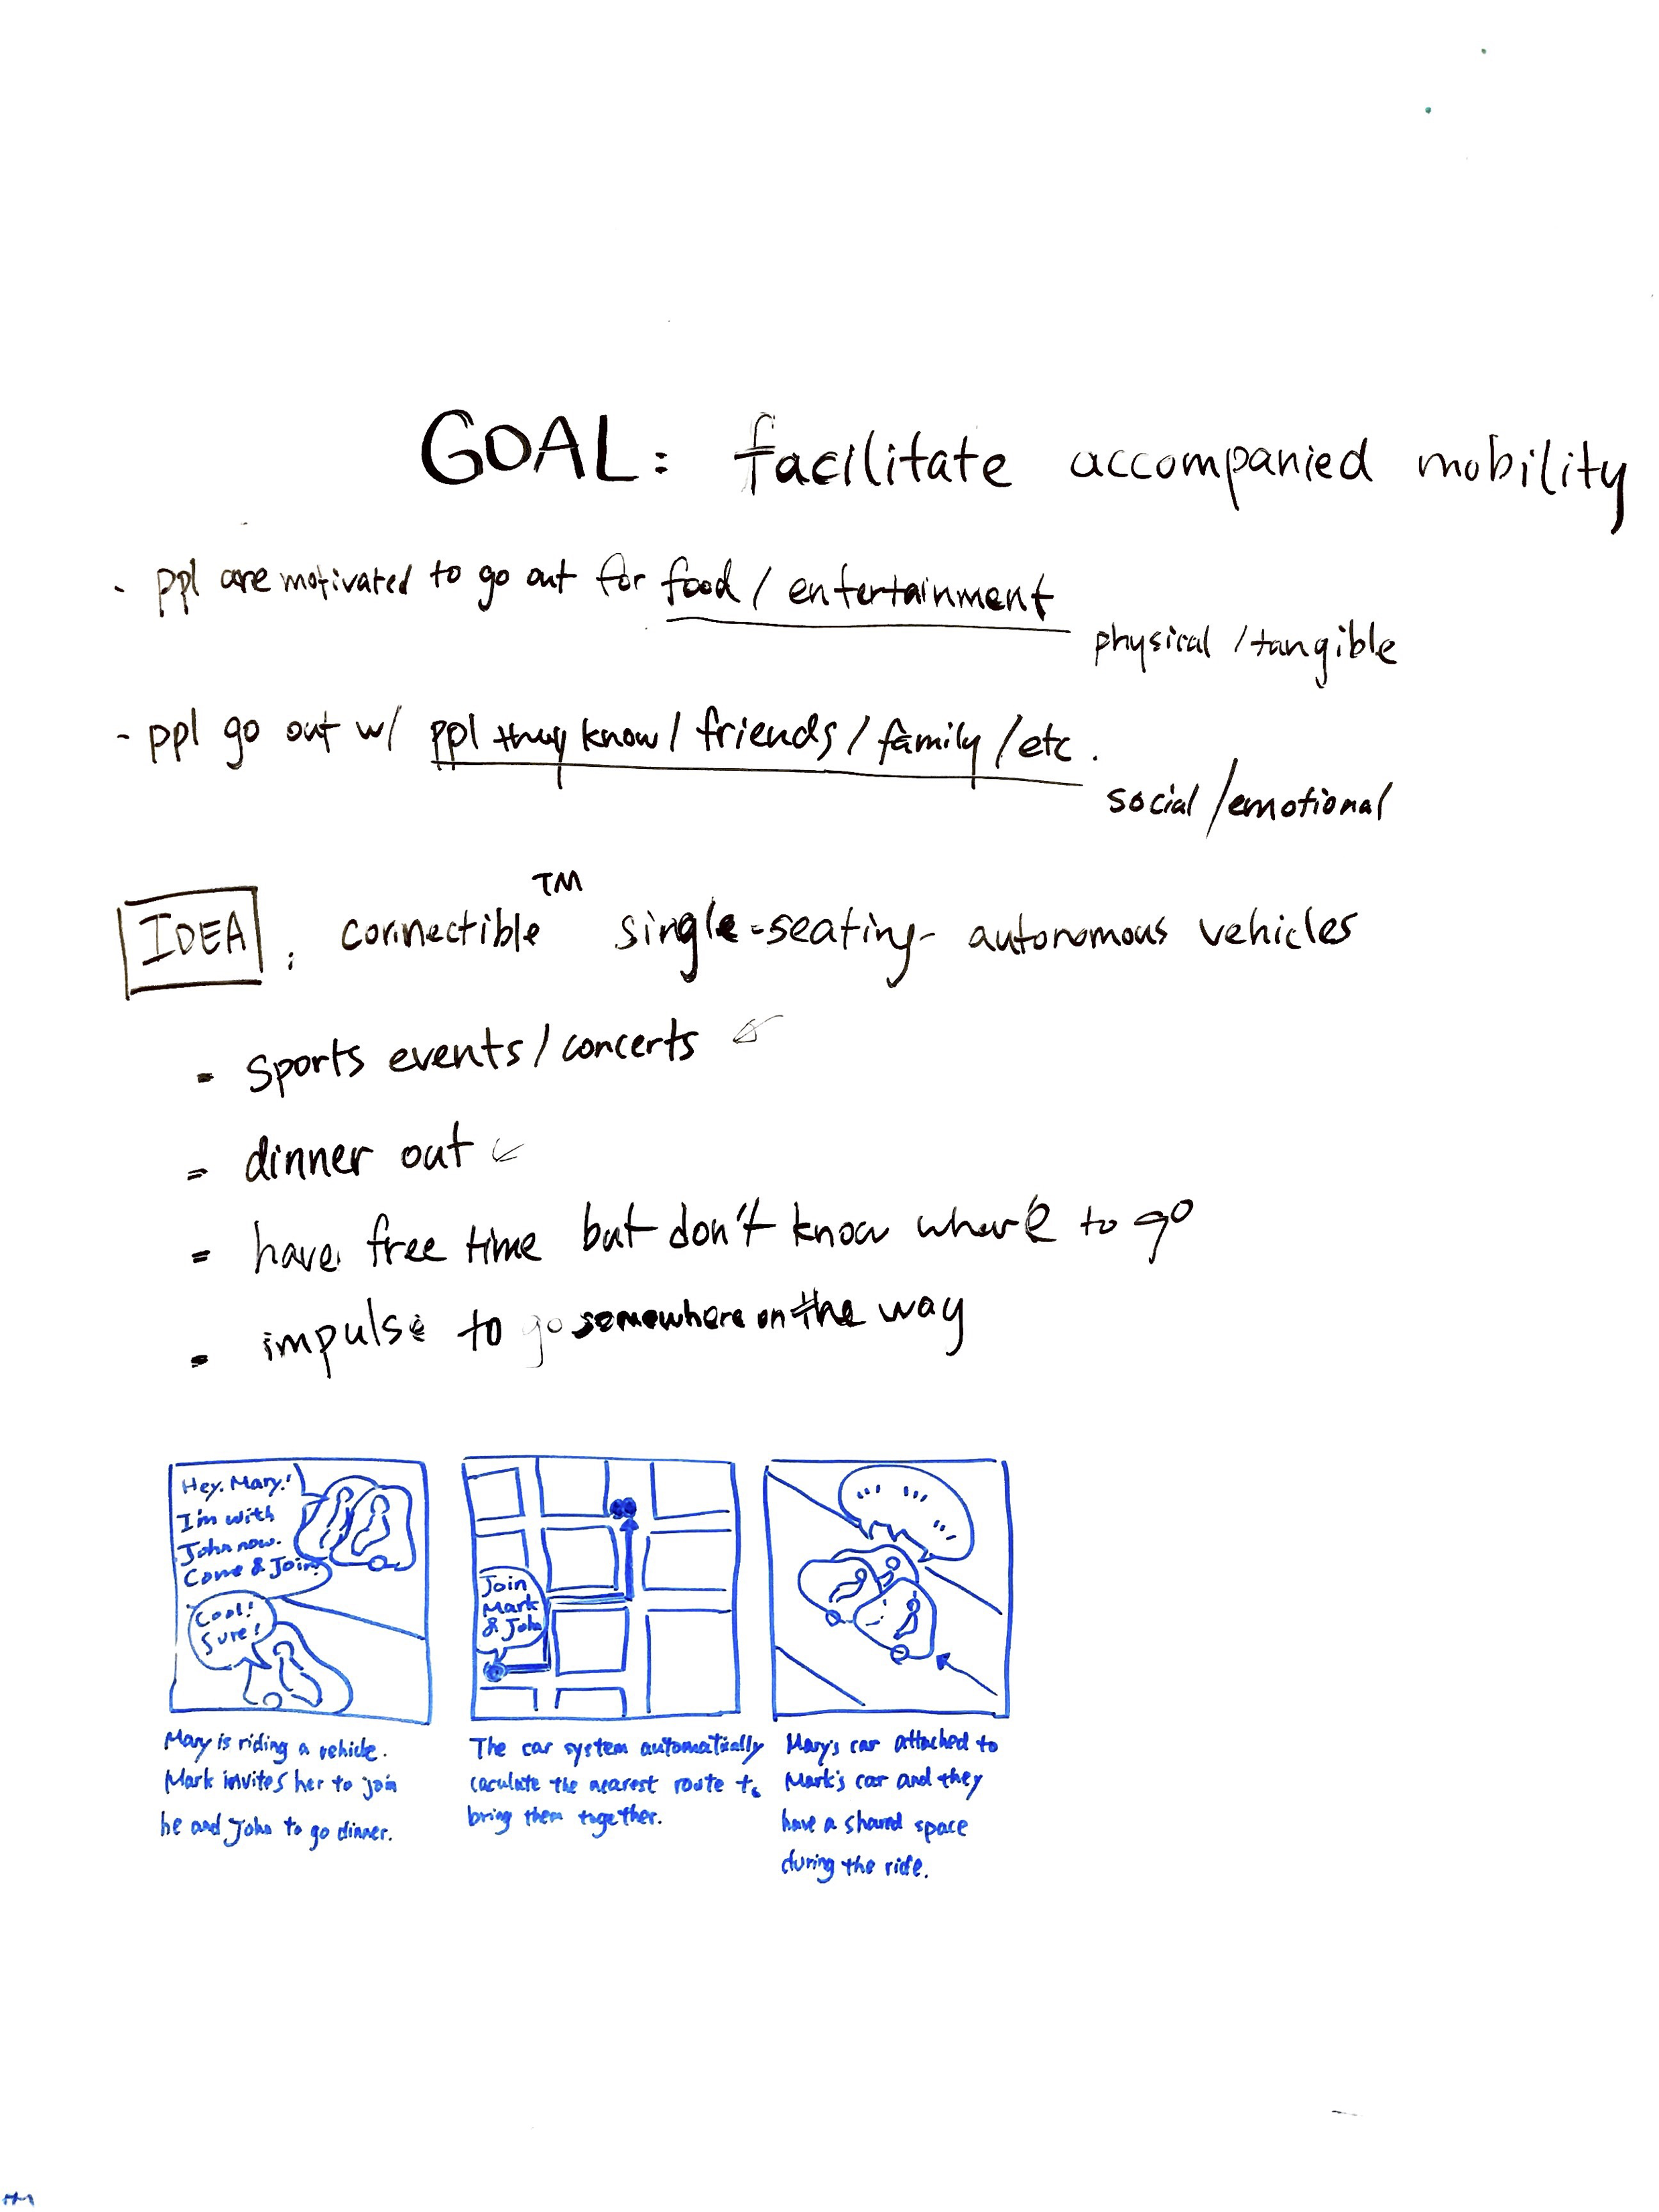 GOAL: facilitate accompanied mobility
- ppl are motivated to go out for food / entertainment
physical / tangible
- ppl go out w/ ppl they know / friends / family / etc.
social / emotional
IDEA : connectible™ single-seating autonomous vehicles
- sports events / concerts
- dinner out
- have free time but don't know where to go
- impulse to go somewhere on the way
Hey. Mary!
I'm with
John now.
Come & Join!
Cool!
Sure!
Join
Mark
& John
Mary is riding a vehicle.
Mark invites her to join
he and John to go dinner.
The car system automatically
caculate the nearest route to
bring them together.
Mary's car attached to
Mark's car and they
have a shared space
during the ride.